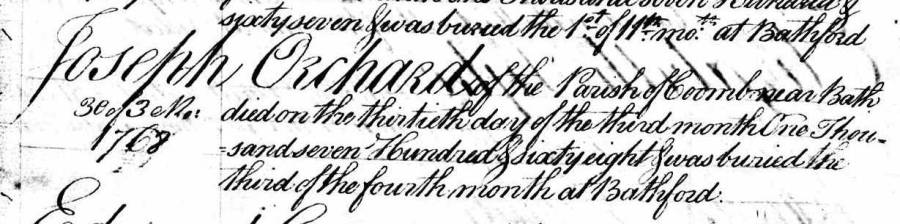 sixty seven & was buried the 1st of 11th mo: at Bathford
Joseph Orchard of the Parish of Coomb near Bath
died on the thirtieth day of the third month One Thou-
30 of 3 Mo:
1768
=sand seven Hundred & sixty eight & was buried the
third of the fourth month at Bathford: